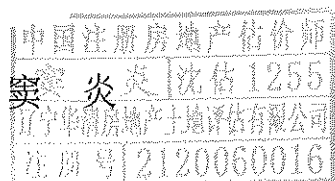 中国注册房地产估价师
窦 炎 沈估1255
辽宁华清房地产土地评估有限公司
注册号 2120060016
窦 炎